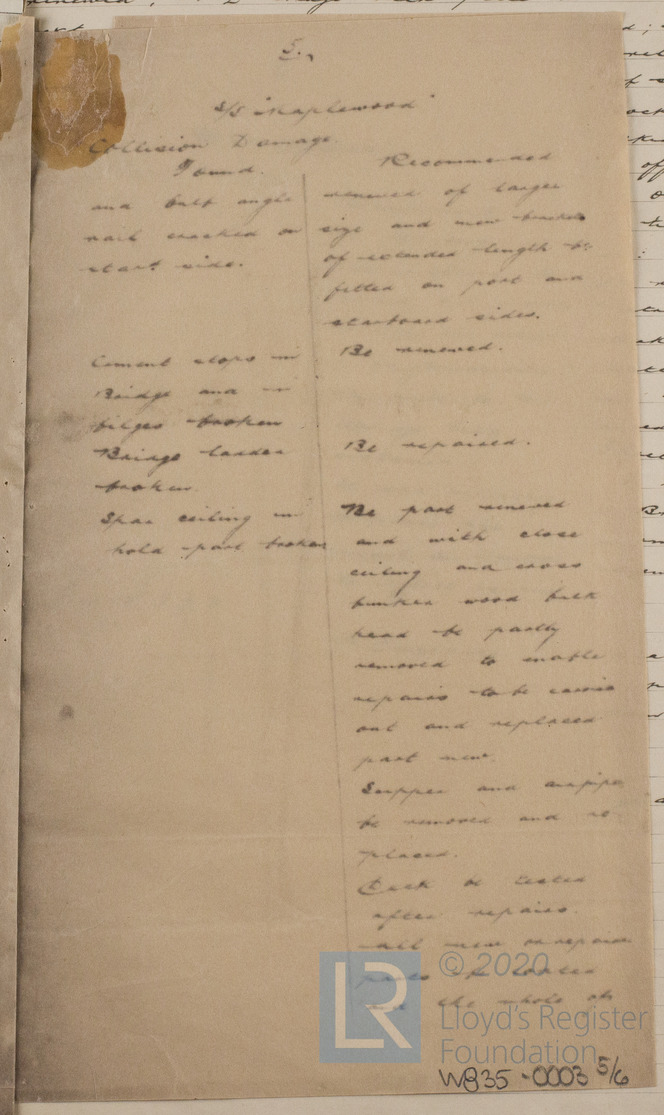 5.
S/S "Maplewood"
Collision Damage.
Found.
and bulb angle
rail cracked on
start side.
Cement stops in
Bridge and in
bilges broken
Bridge ladder
broken.
Spar ceiling in
hold part broken
Recommended
renewed of larger
size and new brackets
of extended length be
fitted on port and
starboard sides.
Be renewed.
Be repaired.
Be part renewed
and with close
ceiling and cross
bunker wood bulk
head be partly
removed to enable
repairs to be carried
out and replaced
part new.
Scupper and air pipe
be removed and re
placed.
be tested
after repairs.
All new or repaired
parts be coated
the whole of
© 2020
LR
Lloyd's Register
Foundation
W835-0003 5/6